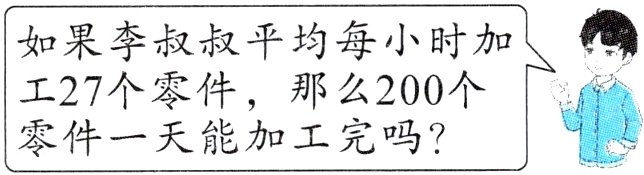 如果李叔叔平均每小时加
工27个零件，那么200个
零件一天能加工完吗？